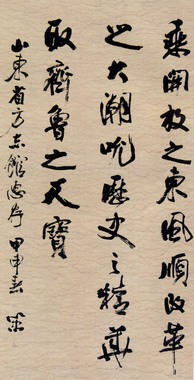 乘开放之东风顺改革
之大潮吮历史之精华
取齐鲁之天宝
山东省方志馆惠存 甲申春